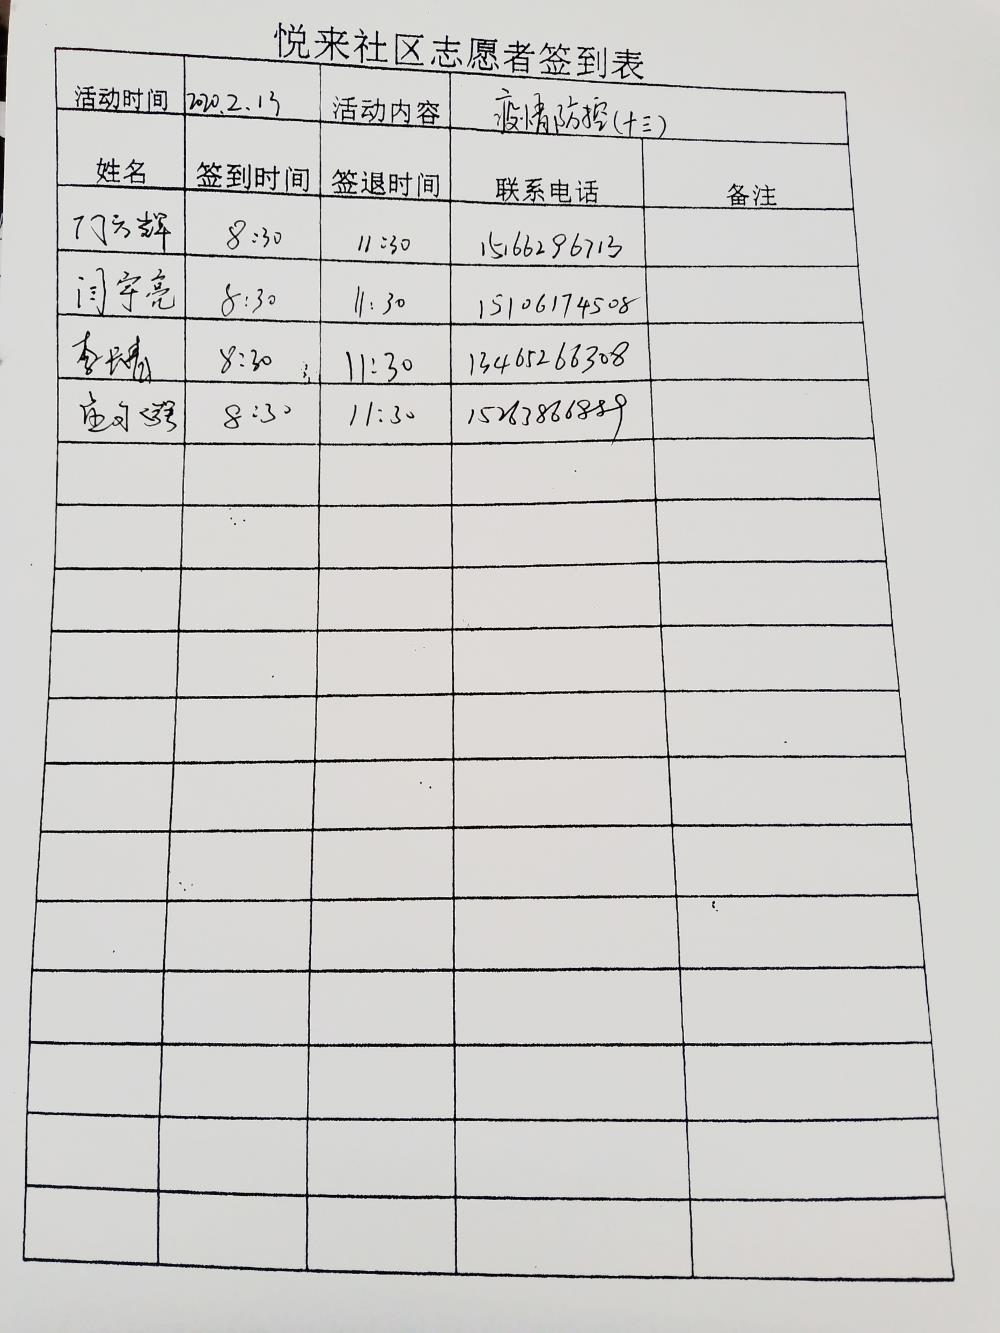 悦来社区志愿者签到表
活动时间 2020.2.13 活动内容 疫情防控(十三)
姓名 签到时间 签退时间 联系电话 备注
闫云辉 8:30 11:30 15166296713
闫宇亮 8:30 11:30 15106174508
李长青 8:30 11:30 13465266308
8:30 11:30 15263866889